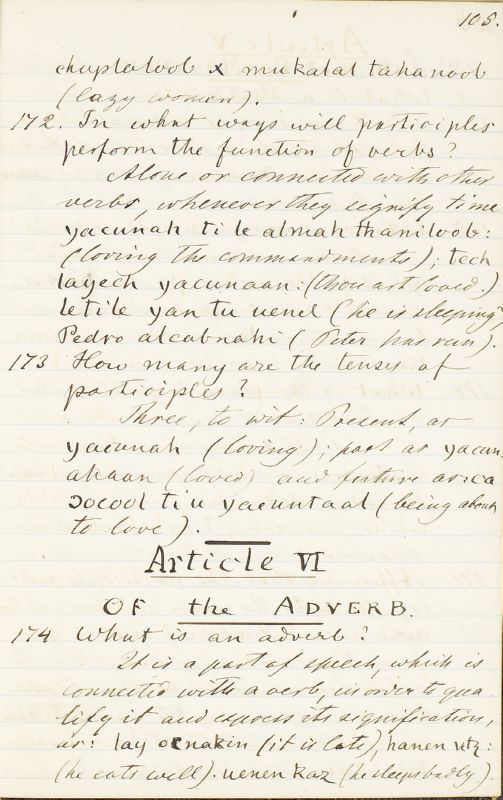 108.
chuplaloob x mukalal tahanoob
(lazy women).
172. In what ways will participles
perform the function of verbs?
Alone or connected with other
verbs, whenever they signify time
yacunah ti le almah thaniloob:
(loving the commandments); tech
layech yacunaan: (thou art loved.)
letile yan tu uenel (he is sleeping
Pedro alcabnahi (Peter has run).
173 How many are the tenses of
participles?
Three, to wit: Present, as
yacunah (loving); past as yacun-
ahaan (loved) and future as: ca
ɔocool ti u yacuntaal (being about
to love).
Article VI
OF the ADVERB.
174. What is an adverb?
It is a part of speech, which is
connected with a verb, in order to qua-
lify it and express its signification,
as: lay ocnakin (it is late), hanen utz:
(he eats well). uenen kaz (he sleeps badly).